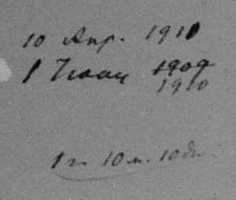 10 Апр. 1911
1 Июня 1909
1910
1 г. 10 м. 10 дн.